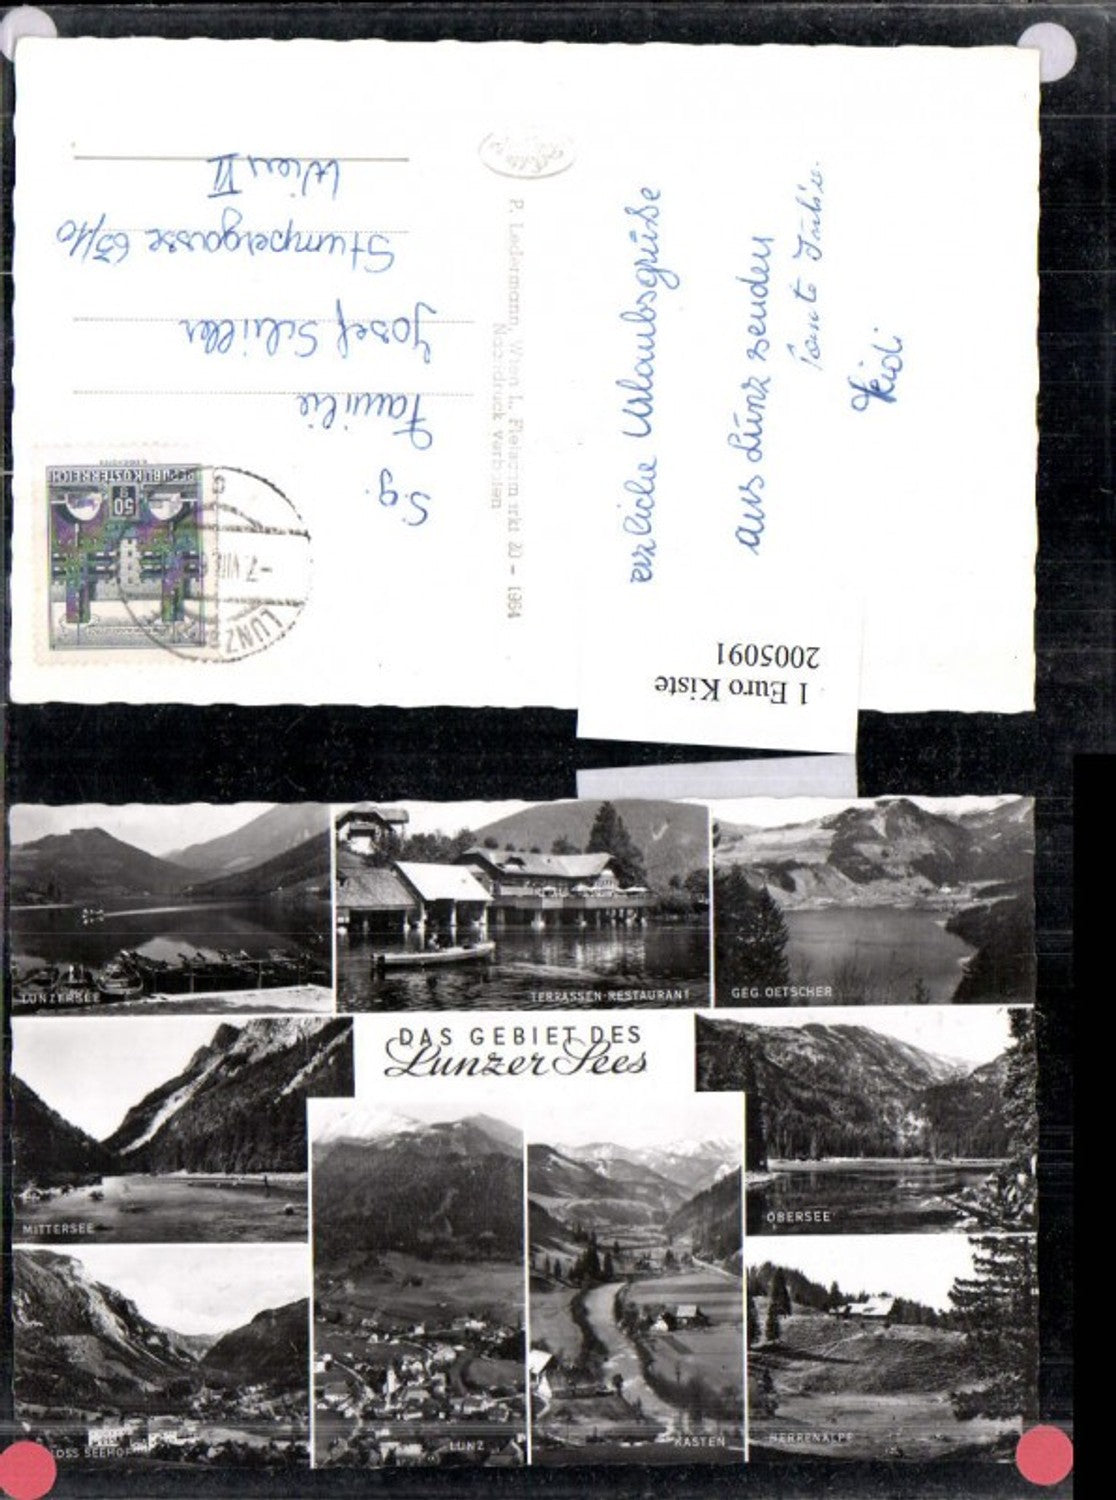 S.g.
Familie
Josef Schiller
Stumpergasse 63/10
Wien VI
REPUBLIK ÖSTERREICH
50
LUNZ
-7.VIII.6
P. Ledermann, Wien I., Fleischm rkt 20 - 1964
Nachdruck verboten
erzliche Urlaubsgrüße
aus Lunz senden
Tante Julie.
Heidi
1 Euro Kiste
2005091
LUNZERSEE
TERRASSEN-RESTAURANT
GEG. OETSCHER
DAS GEBIET DES
Lunzer Sees
MITTERSEE
OBERSEE
OSS SEEHOF
LUNZ
KASTEN
HERRENALPE